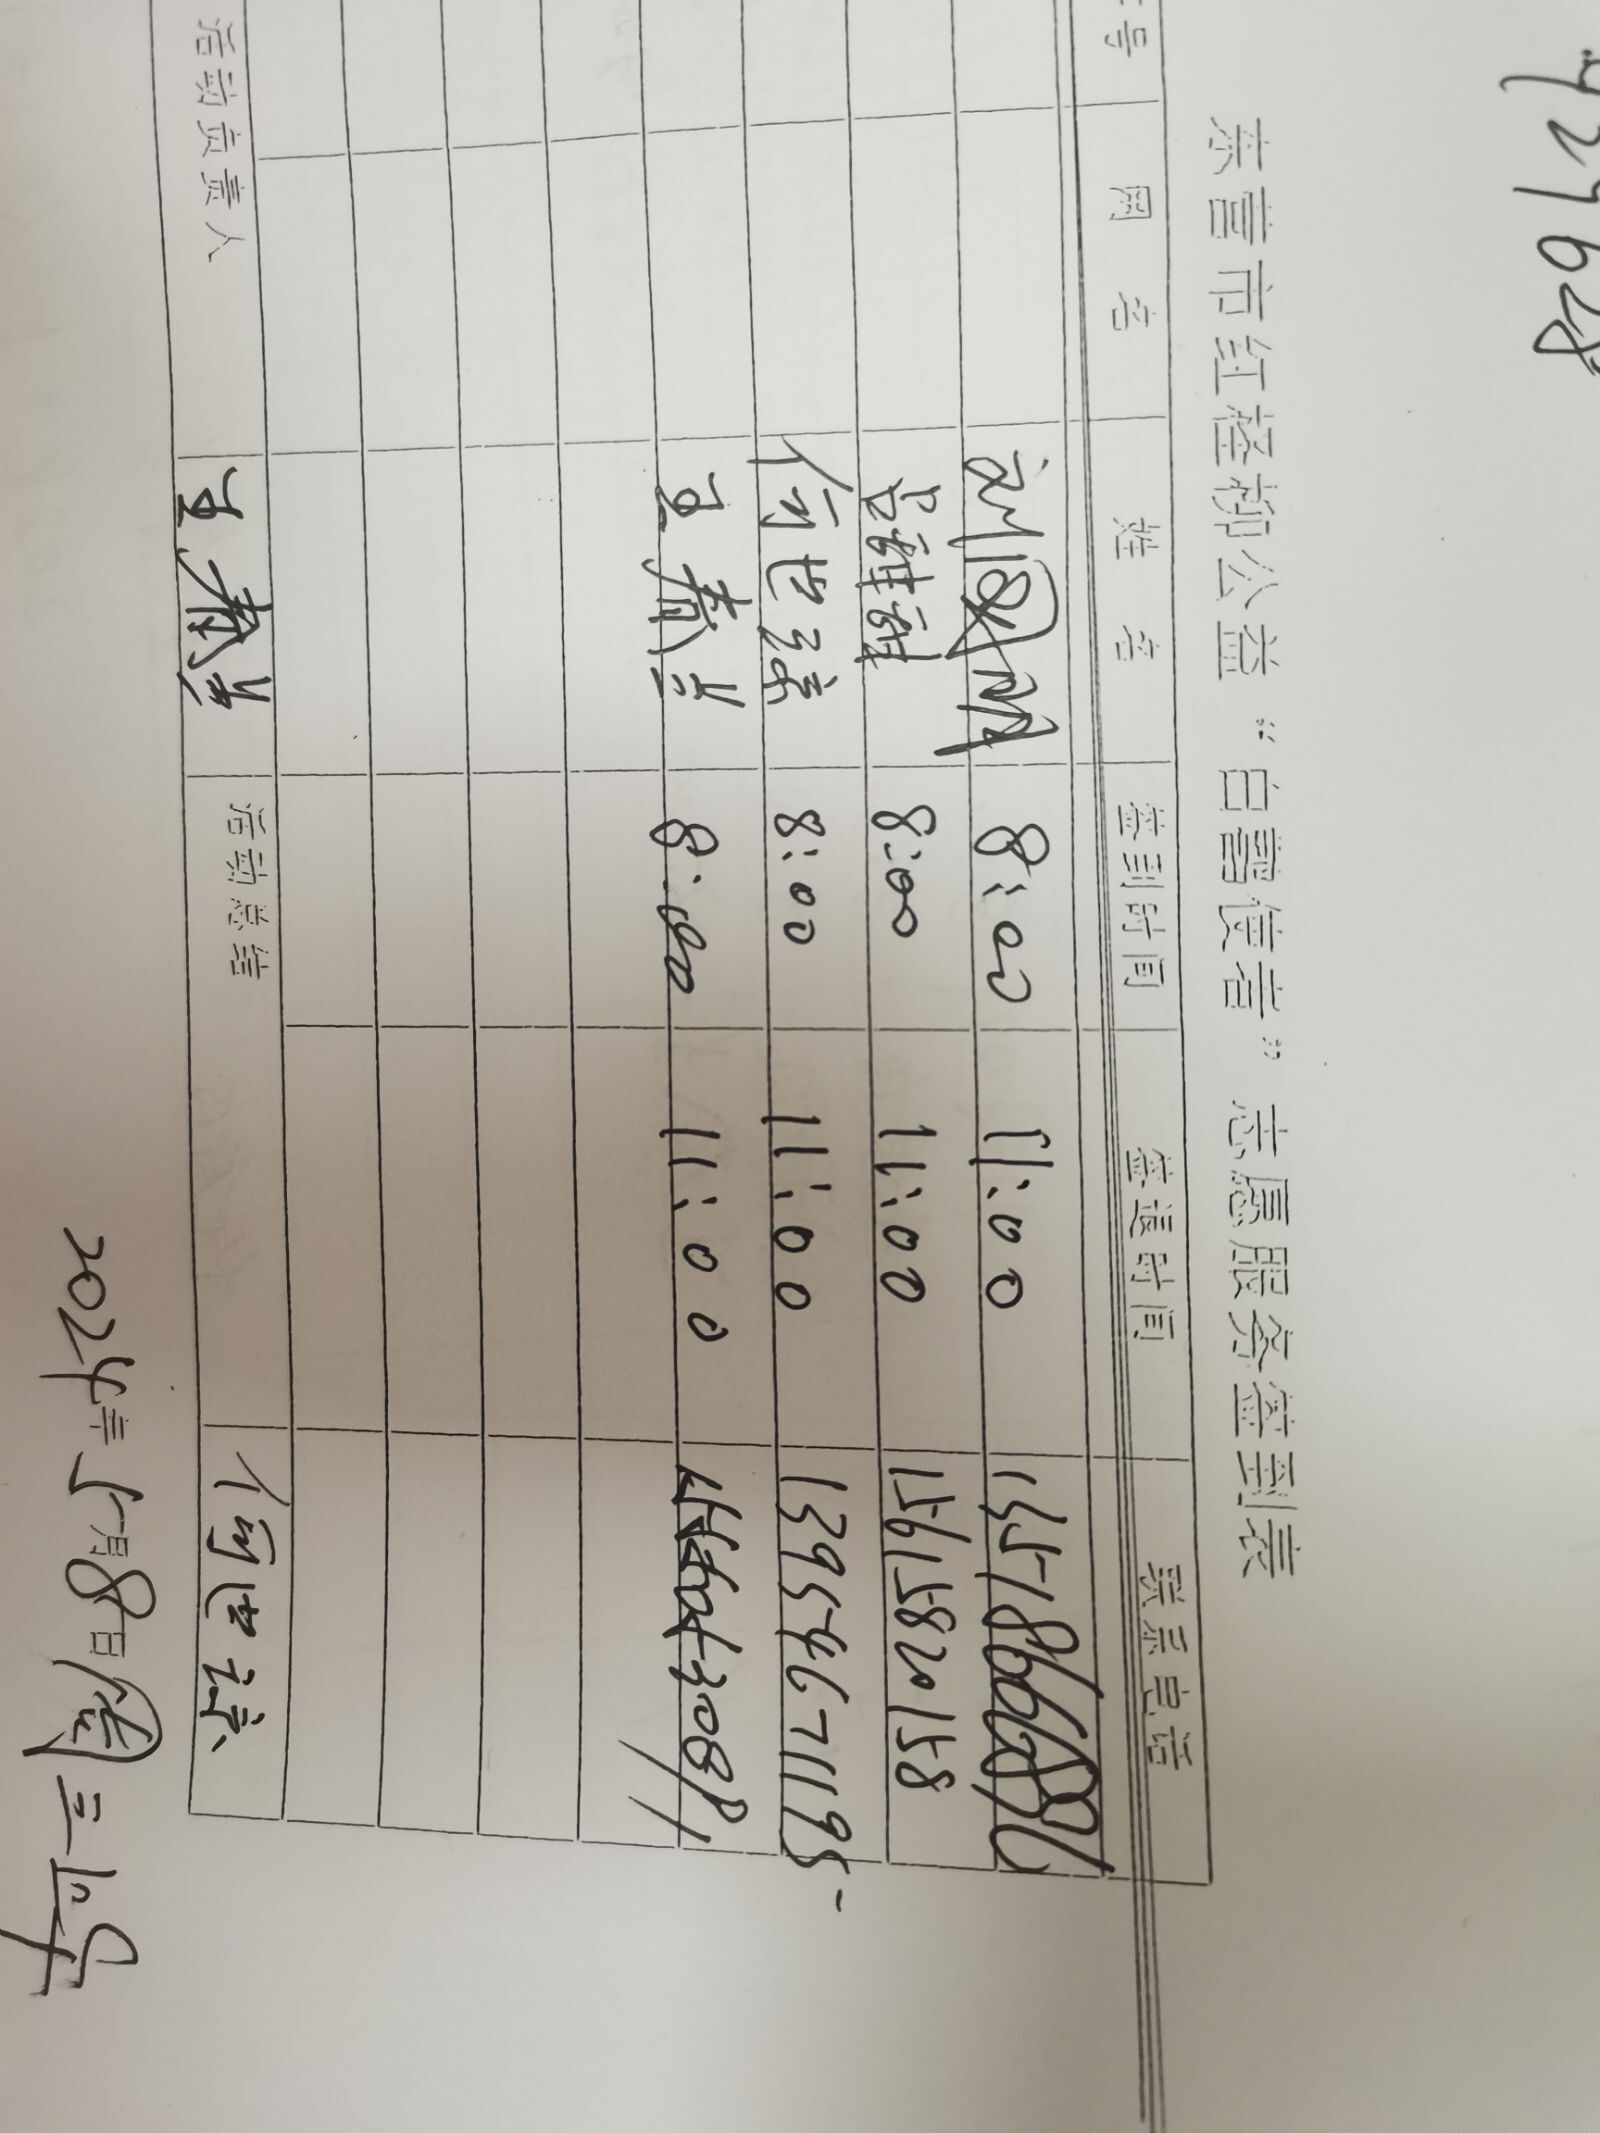 429628
东营市红柽柳公益“白鹭使者”志愿服务签到表
号 网名 姓名 签到时间 签退时间 联系电话
8:00 11:00
吕雅雅 8:00 11:00 15615820158
何世臻 8:00 11:00 13954671195
王春兰 8:00 11:00
活动负责人 王春美 活动总结 何世臻
2024年5月8日周三上午